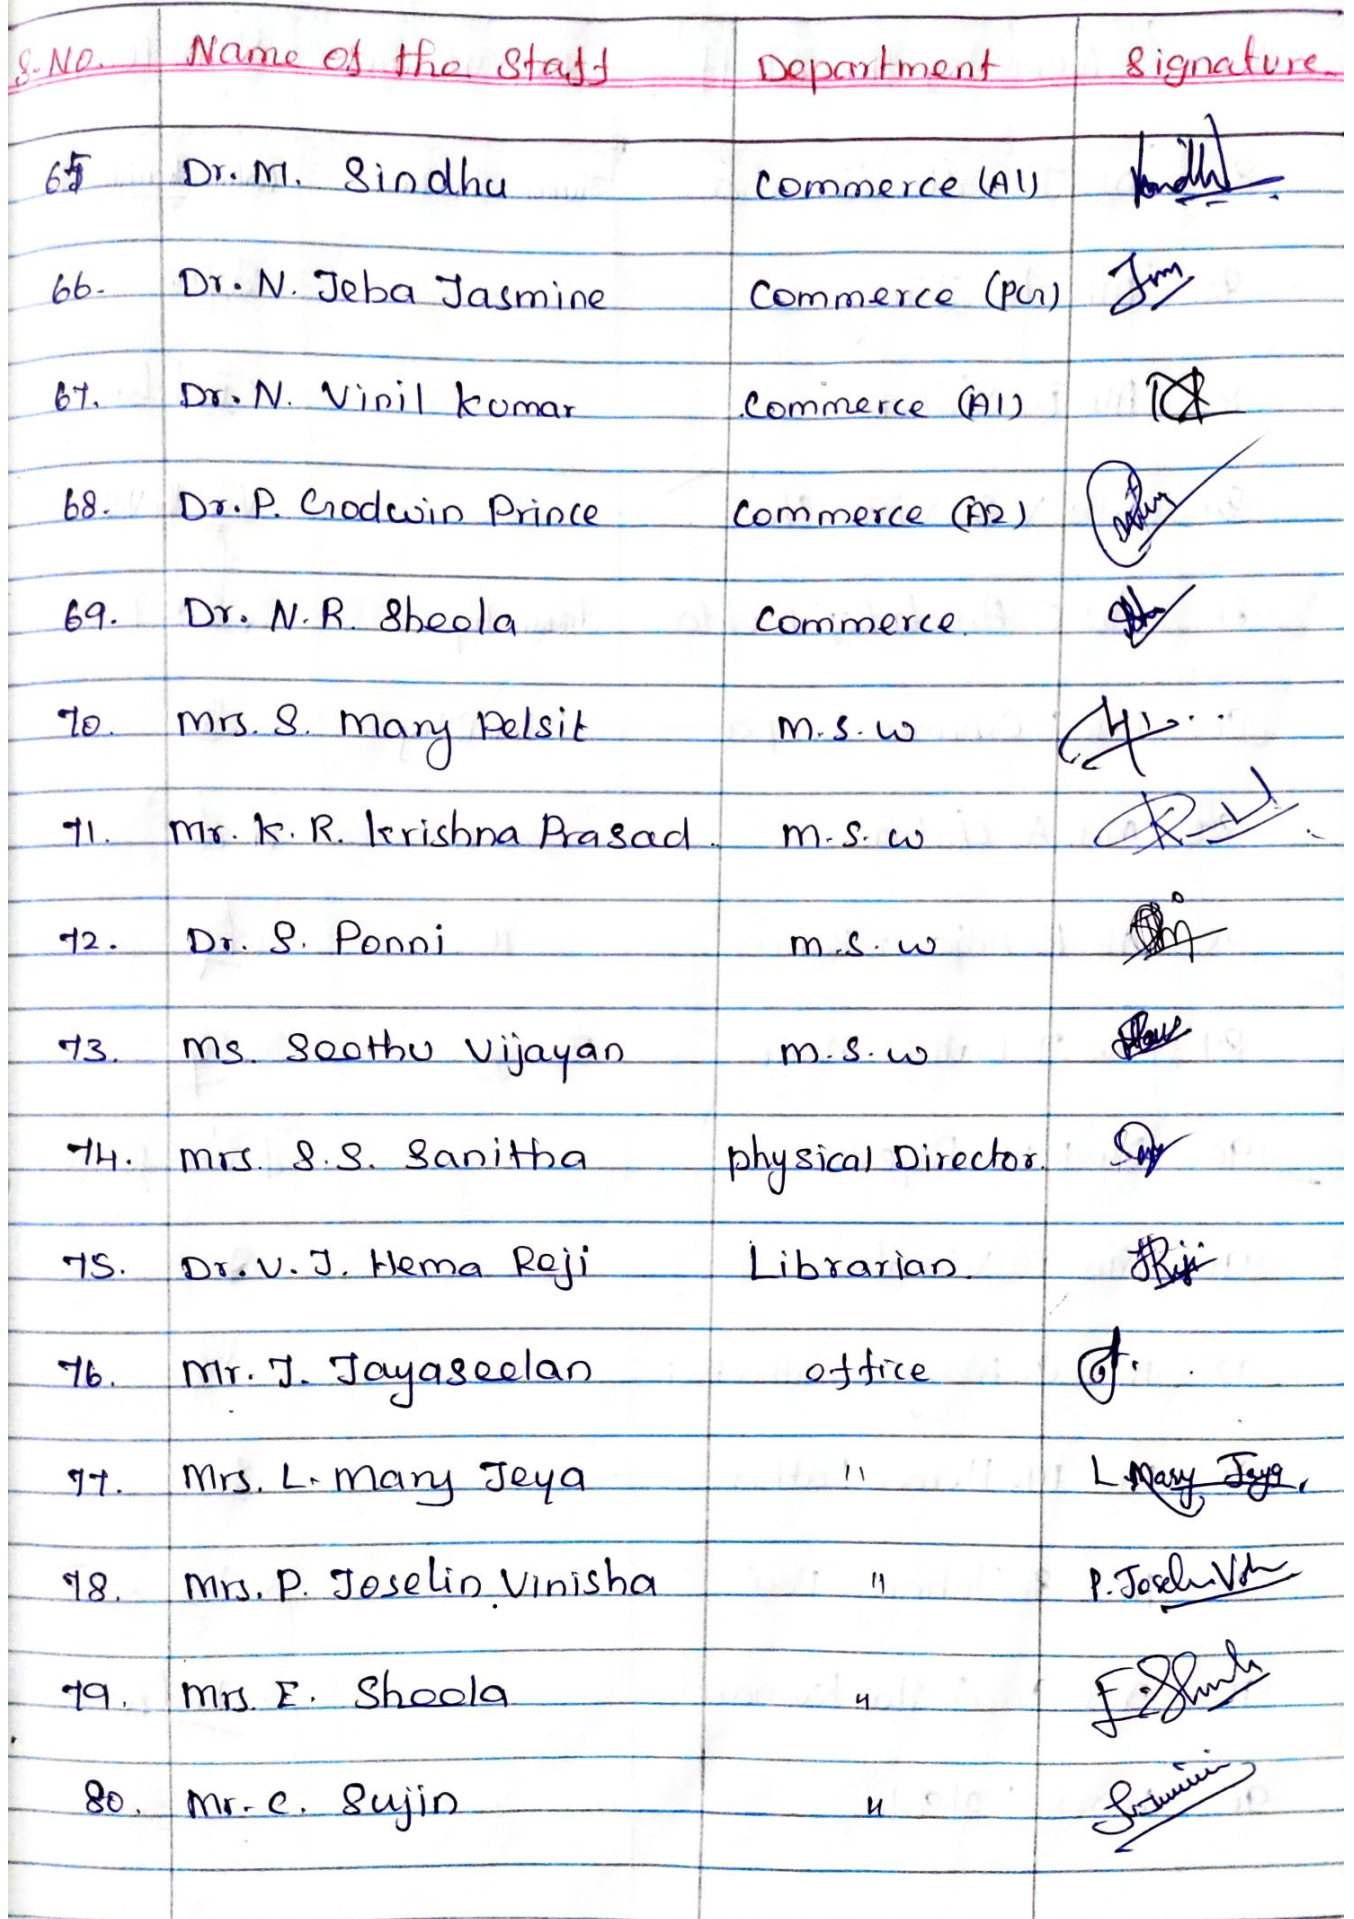 S.No. Name of the Staff Department Signature
65 Dr. M. Sindhu Commerce (A1)
66. Dr. N. Jeba Jasmine Commerce (PG)
67. Dr. N. Vinil Kumar Commerce (A1)
68. Dr. P. Godwin Prince Commerce (A2)
69. Dr. N. R. Sheela Commerce.
70. Mrs. S. Mary Pelsit M.S.W
71. Mr. K. R. Krishna Prasad M.S.W
72. Dr. S. Ponni M.S.W
73. Ms. Seethu Vijayan M.S.W
74. Mrs. S.S. Sanitha Physical Director.
75. Dr. V. J. Hema Reji Librarian.
76. Mr. J. Jayaseelan office
77. Mrs. L. Mary Jeya " L. Mary Jeya.
78. Mrs. P. Joselin Vinisha "
79. Mrs. E. Sheela "
80. Mr. C. Sujin "